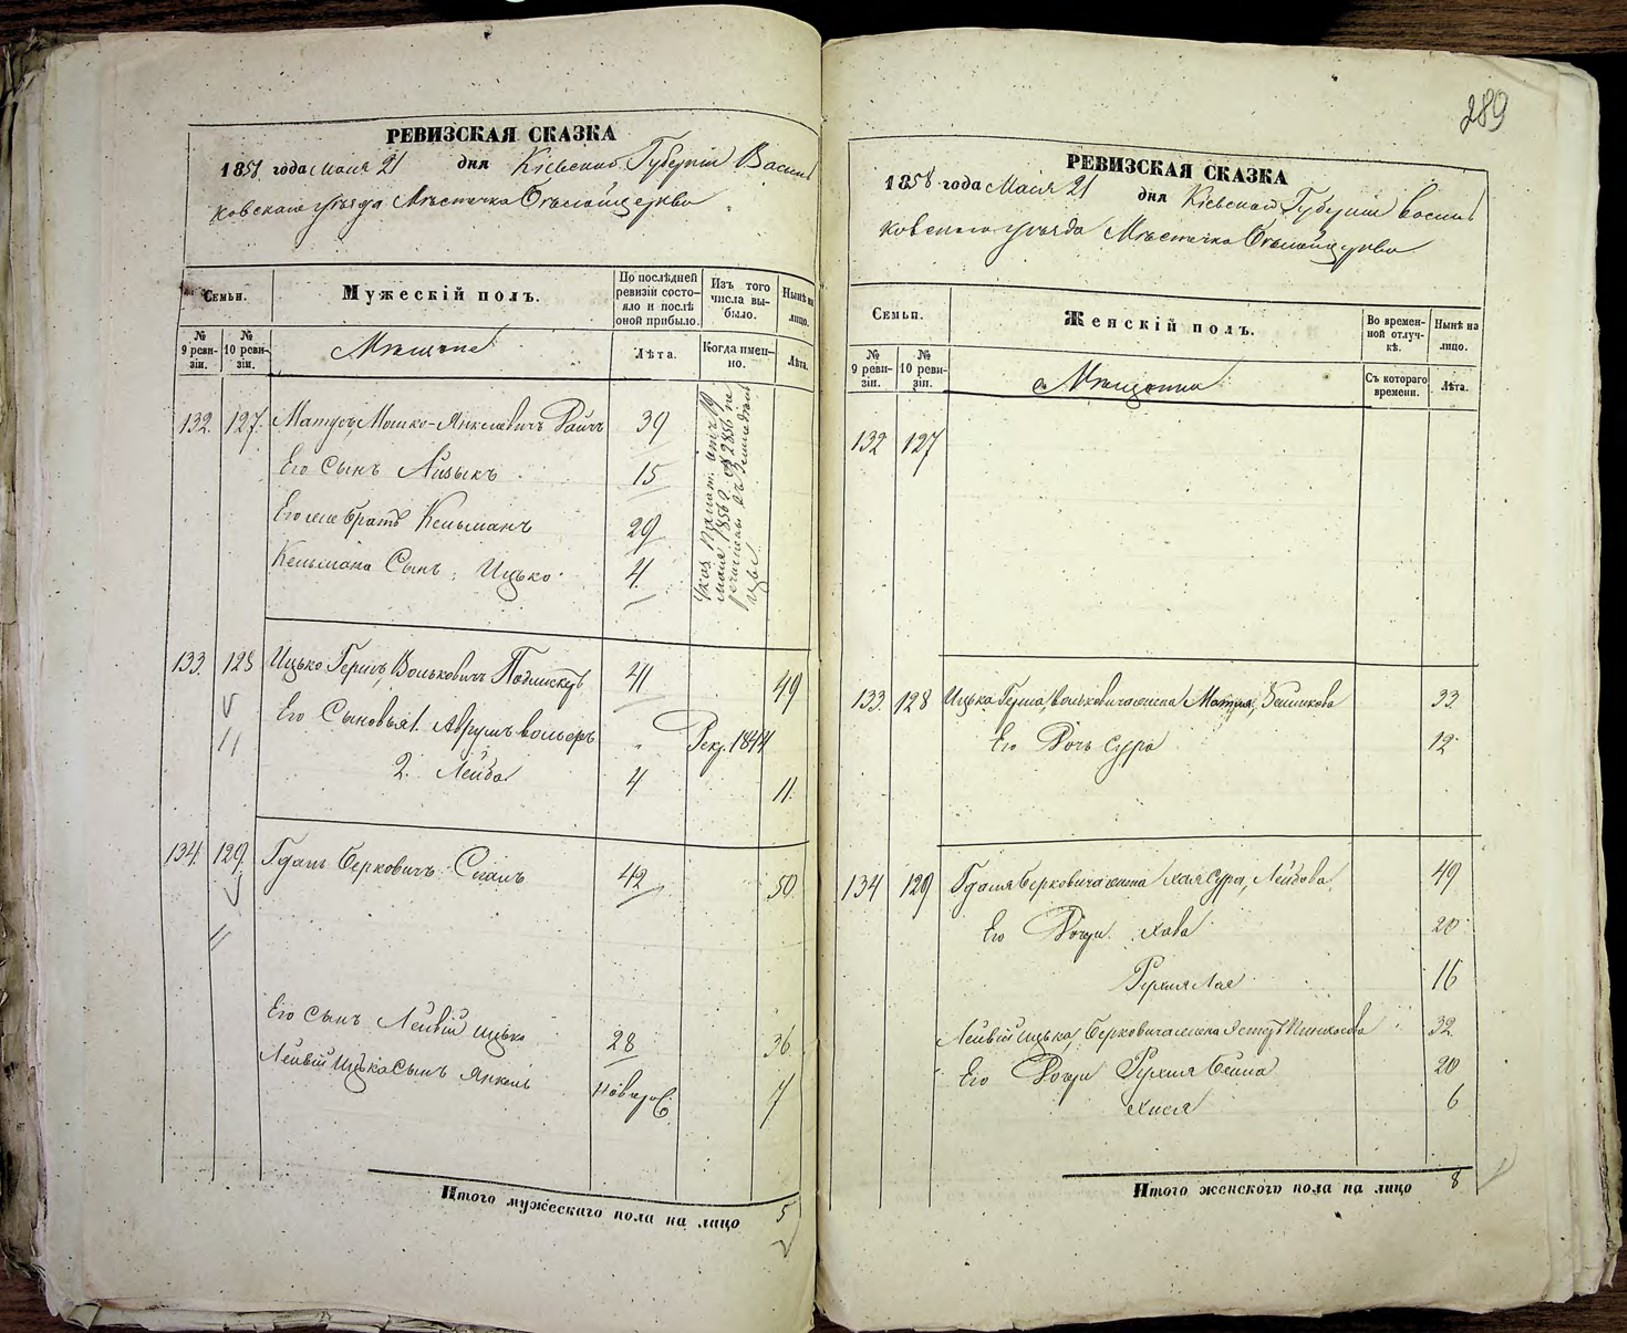 289
РЕВИЗСКАЯ СКАЗКА
1858 года Маія 21 дня Кіевской Губерніи Василь
ковскаго уѣзда Мѣстечка Бѣлойцеркви
Семьи.
Мужескій полъ.
По послѣдней ревизіи состояло и послѣ оной прибыло.
Изъ того числа выбыло.
Нынѣ на лицо.
№ 9 ревизіи.
№ 10 ревизіи.
Мѣщане
Лѣта.
Когда именно.
Лѣта.
132. 127. Мошко-Янкелевичъ 39
Его Сынъ Айзыкъ 15
Его же братъ Кельманъ 29
Кельмана Сынъ Ицько 4
133. 128 Ицько Гершъ Вольковичъ 41 49
Его Сыновья 1. Аврумъ Вольфъ " Рекр. 1844
2. Лейба 4 11.
134. 129. Гдаль Берковичъ 42 50
Его Сынъ Лейвій Ицько 28 36
Лейвій Ицька Сынъ Янкель 7
Итого мужескаго пола на лицо 5
РЕВИЗСКАЯ СКАЗКА
1858 года Маія 21 дня Кіевской Губерніи Василь
ковскаго уѣзда Мѣстечка Бѣлойцеркви
Семьи.
Женскій полъ.
Во временной отлучкѣ.
Нынѣ на лицо.
№ 9 ревизіи.
№ 10 ревизіи.
Мѣщанки
Съ котораго времени.
Лѣта.
132 127
133. 128 Ицька Герша Вольковича жена 33
Его Дочь Сура 12
134 129 Гдаля Берковича жена Хая Сура, Лейбова 49
Его Дочери Хава 20
Рухля Лая 16
Лейвій Ицька Берковича жена 32
Его Дочери Рухля Бейла 20
Хися 6
Итого женского пола на лицо 8